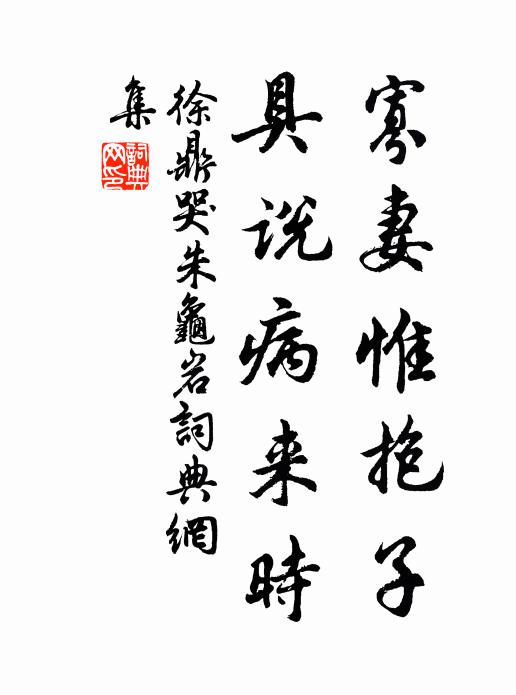 寡妻惟抱子
具说病来時
徐鼎哭朱龜岩詞典網
集
詞典網印